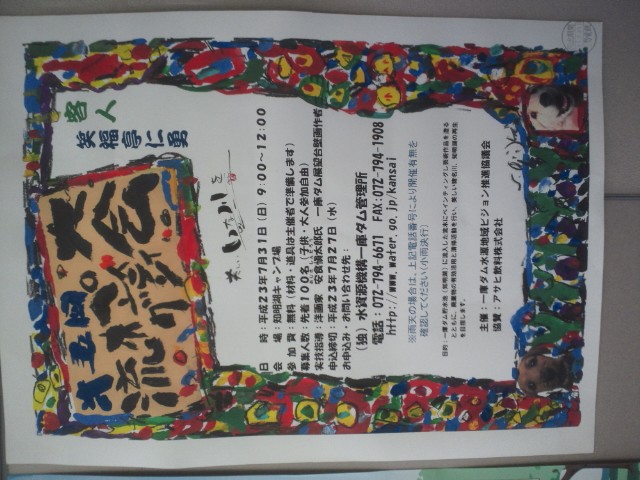 第五回。
流木ペインティング大会
客人
笑福亭仁勇
日　時：平成23年7月31日（日）9:00～12:00
会　場：知明湖キャンプ場
参 加 費：無料（材料・道具は主催者で準備します）
募集人数：先着100名（子供・大人参加自由）
実技指導：洋画家　安食慎太郎氏　一庫ダム展望台壁画作者
申込締切：平成23年7月27日（水）
お申込み・お問い合わせ先：
（独）水資源機構一庫ダム管理所
電話：072-794-6671 FAX:072-794-1908
http://www.water.go.jp/kansai
※雨天の場合は、上記電話番号により開催有無を
確認してください（小雨決行）
主催：一庫ダム水源地域ビジョン推進協議会
協賛：アサヒ飲料株式会社